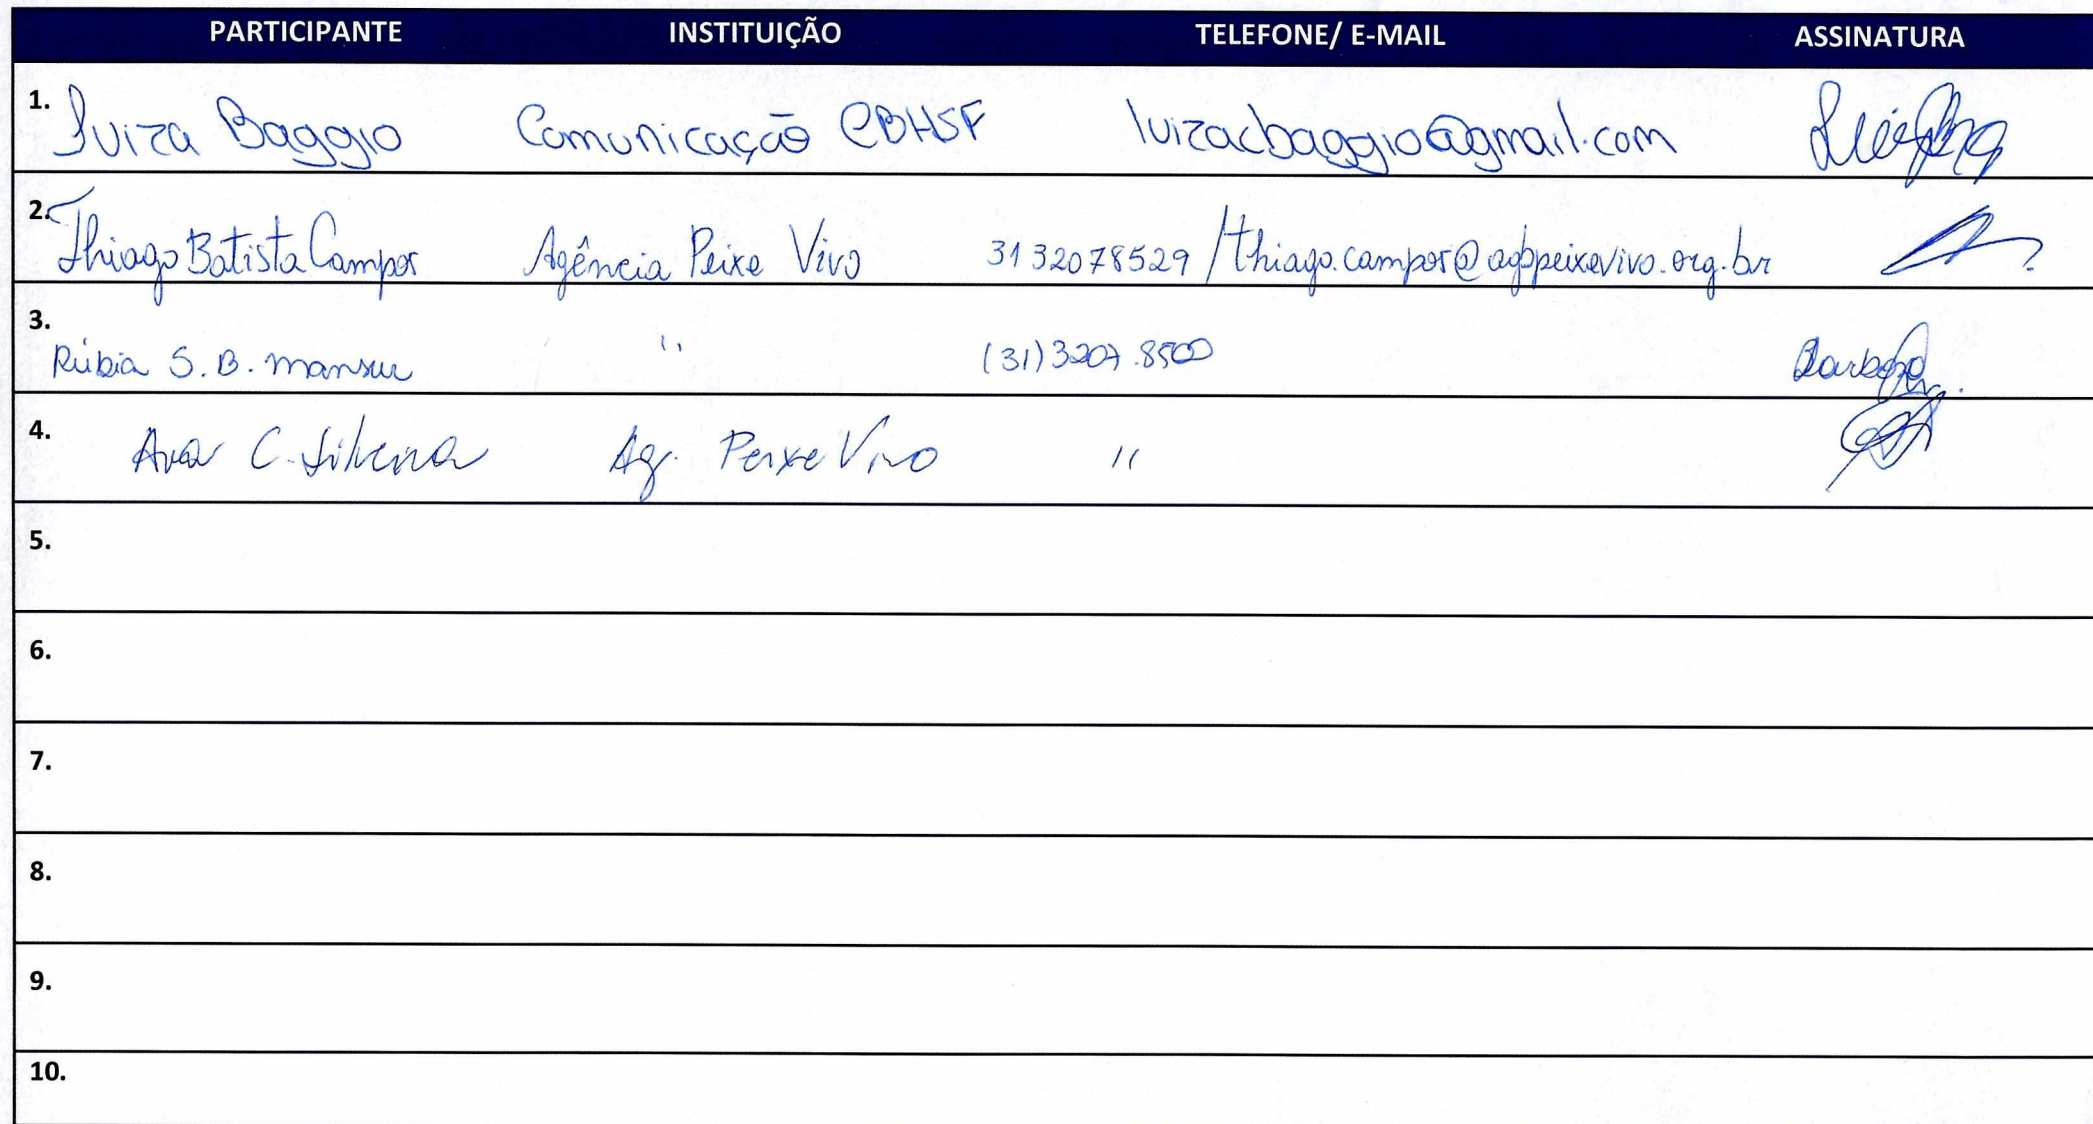 PARTICIPANTE INSTITUIÇÃO TELEFONE/ E-MAIL ASSINATURA
1. Luiza Baggio Comunicação CBHSF luizacbaggio@gmail.com
2. Thiago Batista Campos Agência Peixe Vivo 31 32078529 / thiago.campos@agbpeixevivo.org.br
3. Rúbia S. B. Mansur " (31) 3207.8500 Barbosa
4. Ana C. Silveira Ag. Peixe Vivo "
5.
6.
7.
8.
9.
10.